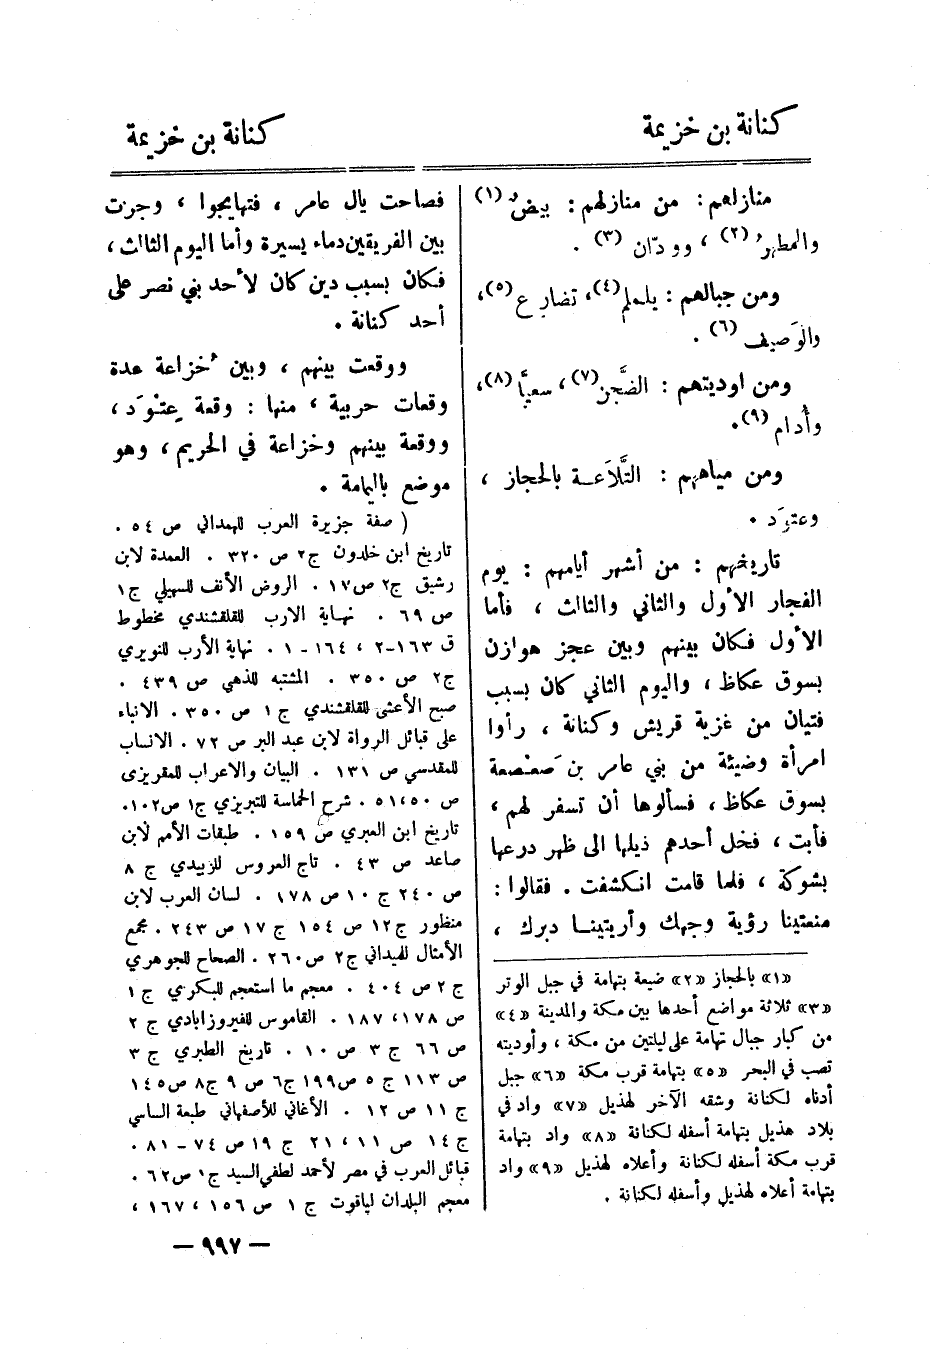 كنانة بن خزيمة
كنانة بن خزيمة
منازلهم: من منازلهم: بيض (١)
والمطهر (٢) ، وودّان (٣) .
ومن جبالهم: يلملم (٤)، تضارع (٥)،
والوَصيف (٦) .
ومن اوديتهم: الضَّجَن (٧)، سعيّا (٨)،
وأُدام (٩).
ومن مياههم: التَّلاَعة بالحجاز ،
وعتوَد .
تاريخهم: من أشهر أيامهم: يوم
الفجار الأول والثاني والثالث ، فأما
الأول فكان بينهم وبين عجز هوازن
بسوق عكاظ ، واليوم الثاني كان بسبب
فتيان من غزية قريش وكنانة ، رأوا
امرأة وضيئة من بني عامر بن صَعْصعة
بسوق عكاظ ، فسألوها أن تسفر لهم ،
فأبت ، فخل أحدهم ذيلها الى ظهر درعها
بشوكة ، فلما قامت انكشفت . فقالوا:
منعتينا رؤية وجهك وأريتينا دبرك ،
«١» بالحجاز «٢» ضيعة بتهامة في جبل الوتر
«٣» ثلاثة مواضع أحدها بين مكة والمدينة «٤»
من كبار جبال تهامة على ليلتين من مكة ، وأوديته
تصب في البحر «٥» بتهامة قرب مكة «٦» جبل
أدناه لكنانة وشقه الآخر لهذيل «٧» واد في
بلاد هذيل بتهامة أسفله لكنانة «٨» واد بتهامة
قرب مكة أسفله لكنانة وأعلاه لهذيل «٩» واد
بتهامة أعلاه لهذيل وأسفله لكنانة .
فصاحت يال عامر ، فتهايجوا ، وجرت
بين الفريقين دماء يسيرة وأما اليوم الثالث ،
فكان بسبب دين كان لأحد بني نصر على
أحد كنانة .
ووقعت بينهم ، وبين خُزاعة عدة
وقعات حربية ، منها: وقعة عِتْوَد ،
ووقعة بينهم وخزاعة في الحريم ، وهو
موضع باليمامة .
( صفة جزيرة العرب للهمداني ص ٥٤ .
تاريخ ابن خلدون ج٢ ص ٣٢٠ . العمدة لابن
رشيق ج٢ ص١٧ . الروض الأنف للسهيلي ج١
ص ٦٩ . نهاية الارب للقلقشندي مخطوط
ق ١٦٣-٢ ، ١٦٤-١ . نهاية الأرب للنويري
ج٢ ص ٣٥٠ . المشتبه للذهبي ص ٤٣٩ .
صبح الأعشى للقلقشندي ج ١ ص ٣٥٠ . الانباء
على قبائل الرواة لابن عبد البر ص ٧٢ . الانساب
للمقدسي ص ١٣١ . البيان والاعراب للمقريزى
ص ٥٠،٥١ . شرح الحماسة للتبريزي ج١ ص١٠٢.
تاريخ ابن العبري ص ١٥٩ . طبقات الأمم لابن
صاعد ص ٤٣ . تاج العروس للزبيدي ج ٨
ص ٢٤٠ ج ١٠ ص ١٧٨ . لسان العرب لابن
منظور ج١٢ ص ١٥٤ ج ١٧ ص ٢٤٣ . مجمع
الأمثال للميداني ج٢ ص٢٦٠ . الصحاح للجوهري
ج ٢ ص ٤٠٤ . معجم ما استعجم للبكري ج ١
ص ١٧٨، ١٨٧ . القاموس للفيروزابادي ج ٢
ص ٦٦ ج ٣ ص ١٠ . تاريخ الطبري ج ٣
ص ١١٣ ج ٥ ص١٩٩ ج٦ ص ٩ ج٨ ص١٤٥
ج ١١ ص ١٢ . الأغاني للأصفهاني طبعة الساسي
ج ١٤ ص ١١ ، ٢١ ج ١٩ ص ٧٤ - ٨١ .
قبائل العرب في مصر لأحمد لطفي السيد ج١ ص٦٢ .
معجم البلدان لياقوت ج ١ ص ١٥٦ ، ١٦٧ ،
— ٩٩٧ —